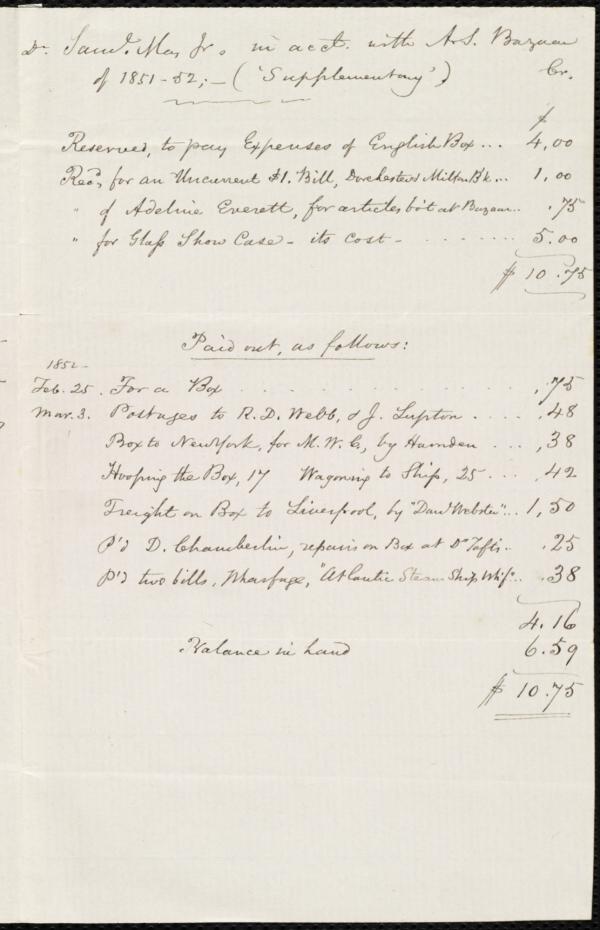 Dr. Saml. May Jr. in acct. with A.S. Bazaar
of 1851-52;— ('Supplementary') Cr.
$
Reserved, to pay Expenses of English Box... 4,00
Recd. for an Uncurrent $1. Bill, Dorchester & Milton Bk... 1,00
" of Adeline Everett, for articles bo't at Bazaar... .75
" for Glass Show Case - its cost - ....... 5.00
$ 10.75
Paid out, as follows:
1852-
Feb. 25. For a Box ........ ,75
Mar. 3. Postages to R. D. Webb, & J. Lupton .... .48
Box to New York, for M. W. C., by Harnden ... ,38
Hooping the Box, 17 Wagoning to Ship, 25 ... ,42
Freight on Box to Liverpool, by "Danl Webster"... 1,50
P'd D. Chamberlin, repairs on Box at Dr Taft's.. .25
P'd two bills, Wharfage, "Atlantic Steam Ship Whf".. .38
4.16
Balance in hand 6.59
$ 10.75